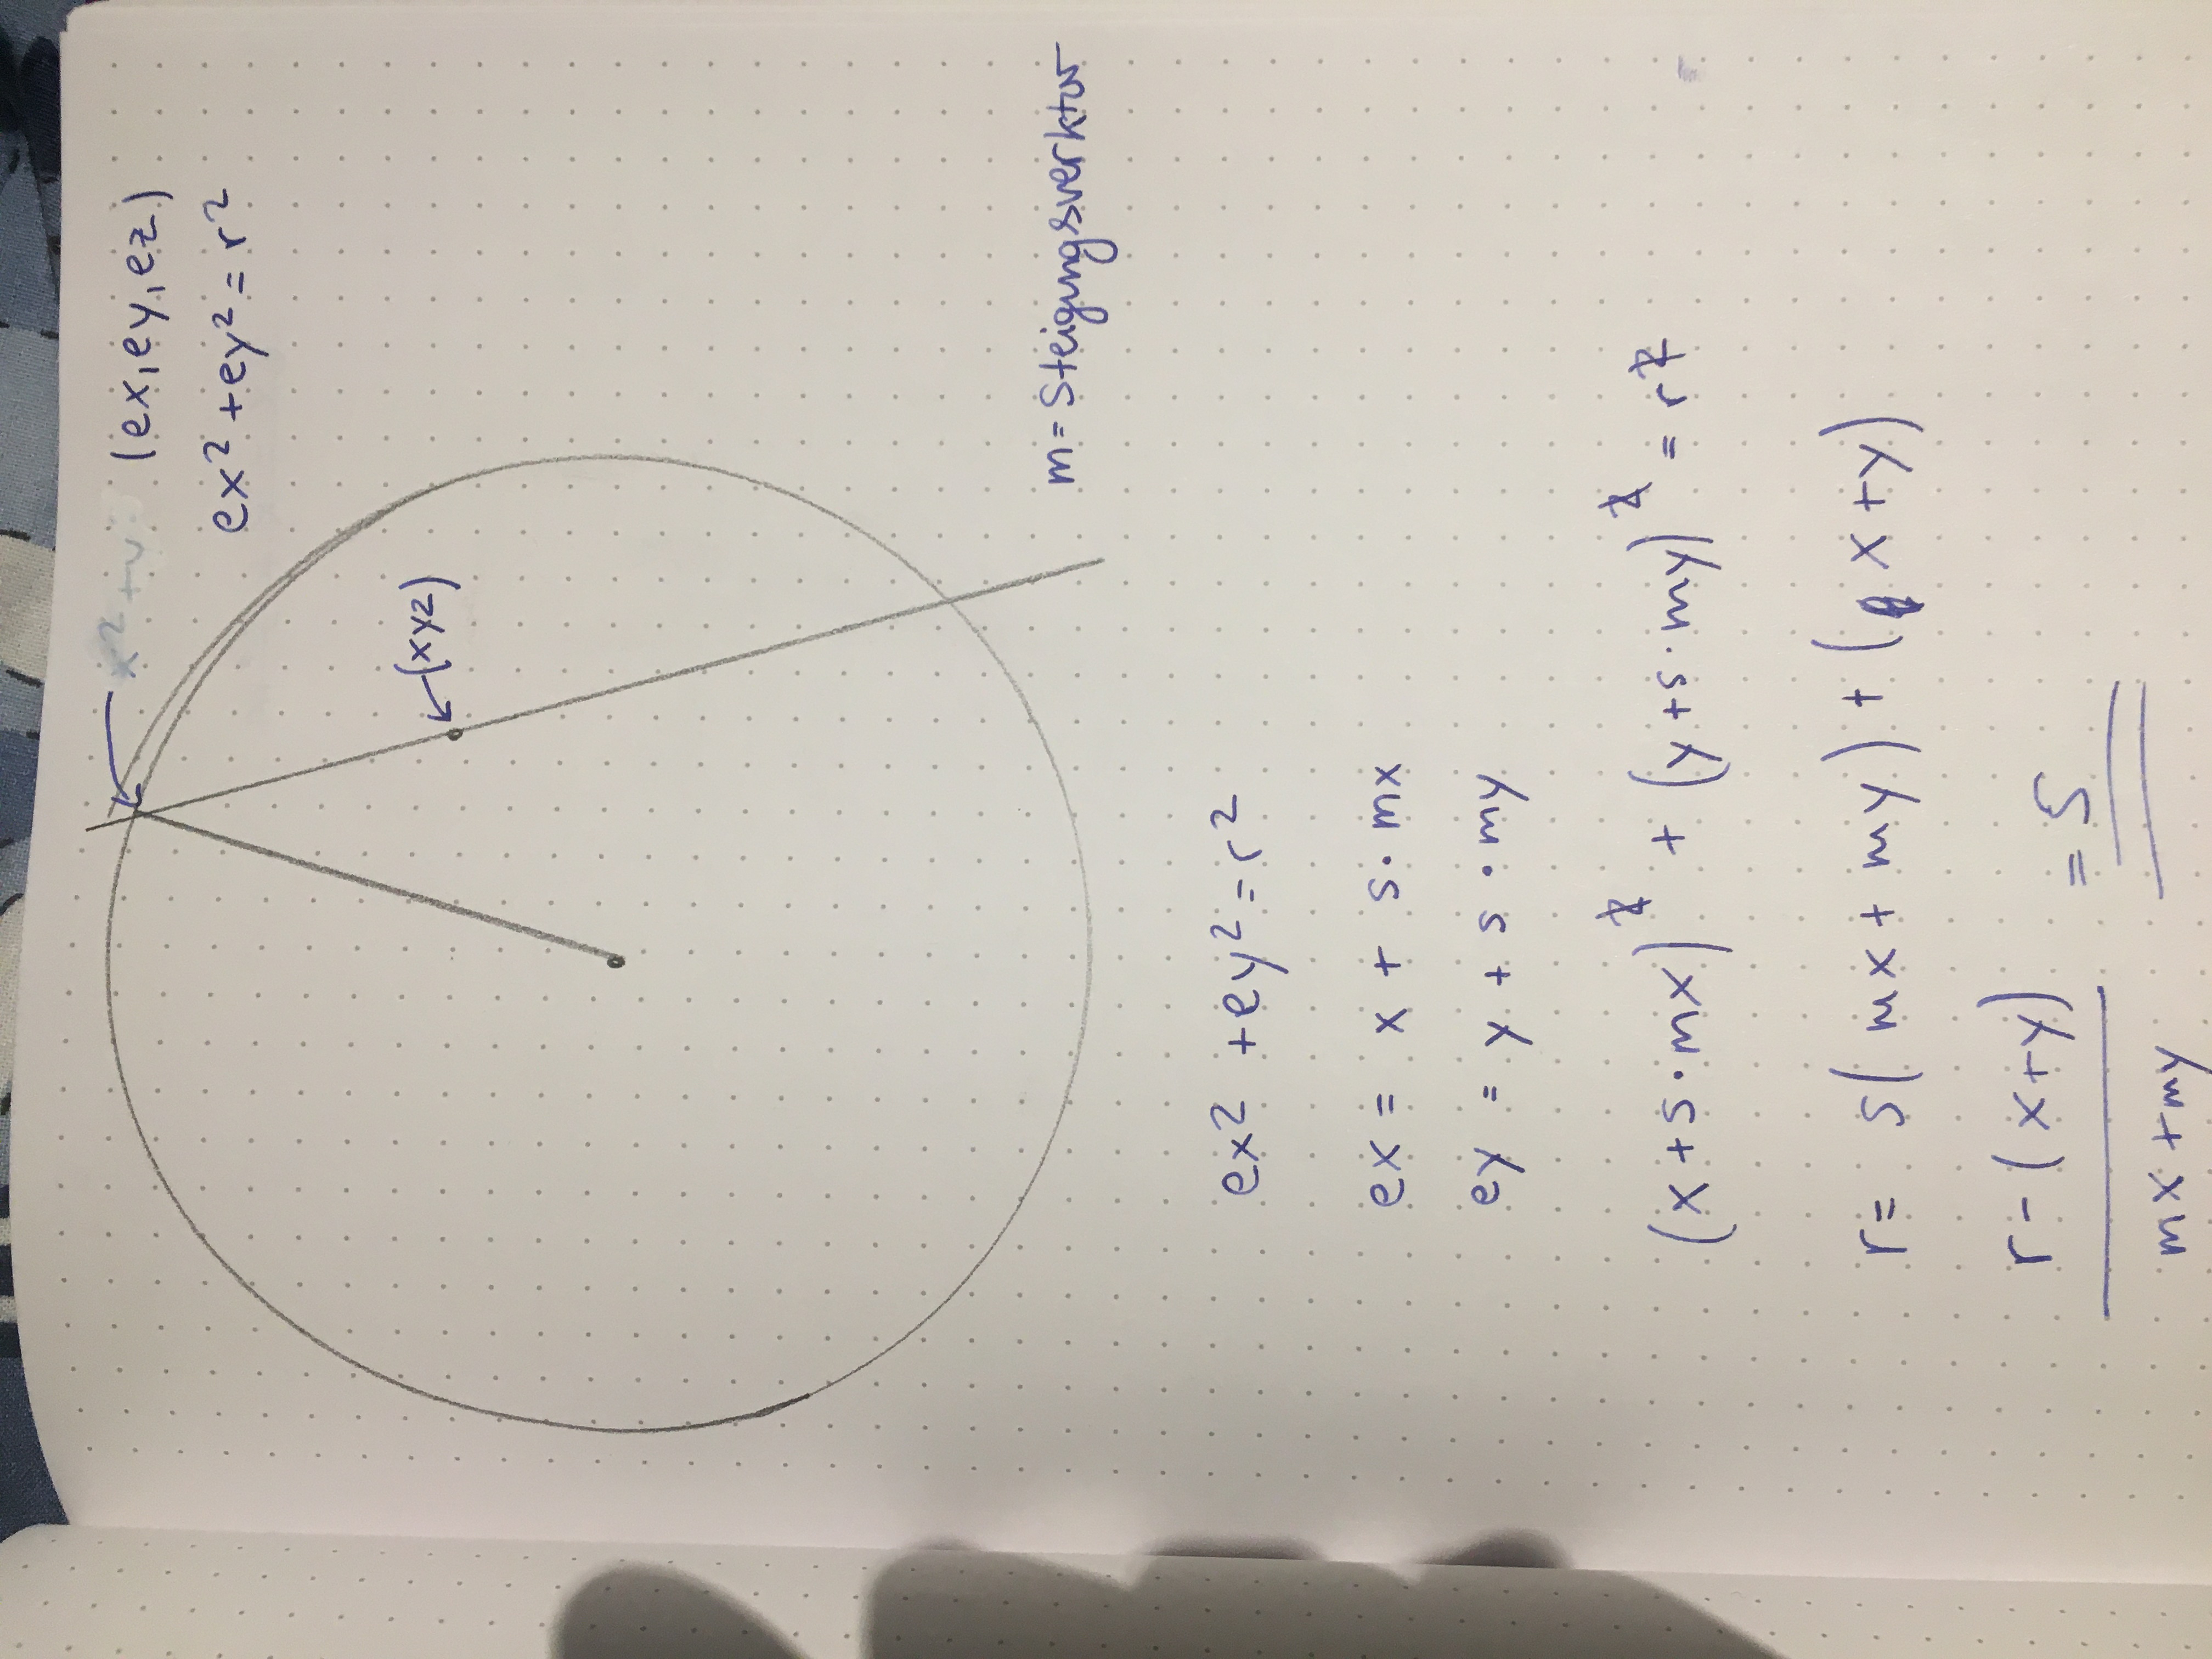 (ex, ey, ez)
ex² + ey² = r²
(xyz)
m = Steigungsverktor
ex² + ey² = r²
ex = x + s · mx
ey = y + s · my
(x + s · mx)² + (y + s · my)² = r²
r = s( mx + my ) + ( x + y )
r - ( x + y )
= S
mx + my